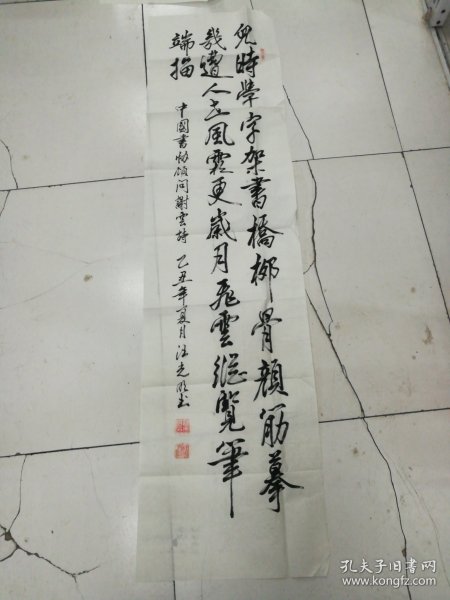 兒時學字架書橋柳骨顏筋摹
幾遭人世風霜更歲月飛雲縱覽筆
端描
中國書協顧問謝雲詩 乙丑年夏月汪光書
孔夫子旧书网
www.kongfz.com